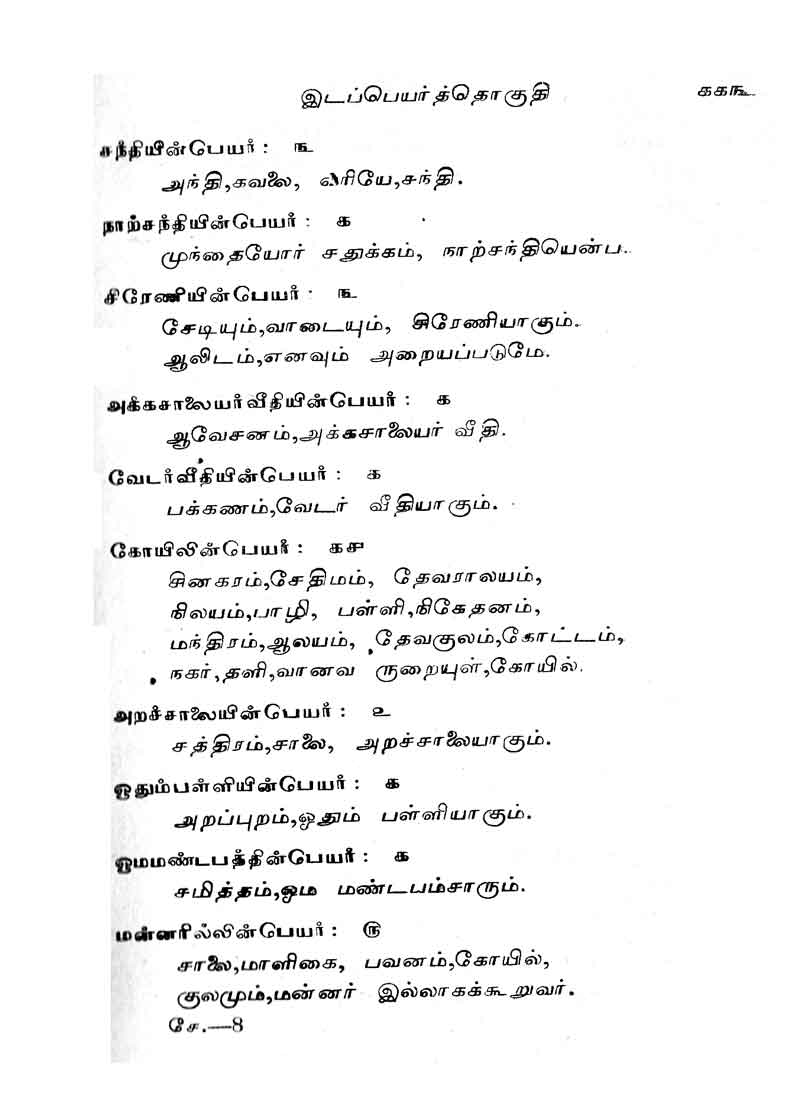 இடப்பெயர்த்தொகுதி ௧௧௩
சந்தியின்பெயர் : ௩
அந்தி,கவலை, விரியே,சந்தி.
நாற்சந்தியின்பெயர் : ௧
முந்தையோர் சதுக்கம், நாற்சந்தியென்ப.
சிரேணியின்பெயர் : ௩
சேடியும்,வாடையும், சிரேணியாகும்.
ஆலிடம்,எனவும் அறையப்படுமே.
அக்கசாலையர்வீதியின்பெயர் : ௧
ஆவேசணம்,அக்கசாலையர் வீதி.
வேடர்வீதியின்பெயர் : ௧
பக்கணம்,வேடர் வீதியாகும்.
கோயிலின்பெயர் : ௧௪
சினகரம்,சேதிமம், தேவராலயம்,
நிலயம்,பாழி, பள்ளி,நிகேதனம்,
மந்திரம்,ஆலயம், தேவகுலம்,கோட்டம்,
நகர்,தளி,வானவ ருறையுள்,கோயில்.
அறச்சாலையின்பெயர் : ௨
சத்திரம்,சாலை, அறச்சாலையாகும்.
ஓதும்பள்ளியின்பெயர் : ௧
அறப்புறம்,ஓதும் பள்ளியாகும்.
ஓமமண்டபத்தின்பெயர் : ௧
சமித்தம்,ஓம மண்டபம்சாரும்.
மன்னரில்லின்பெயர் : ௫
சாலை,மாளிகை, பவனம்,கோயில்,
குலமும்,மன்னர் இல்லாகக்கூறுவர்.
சே.—8